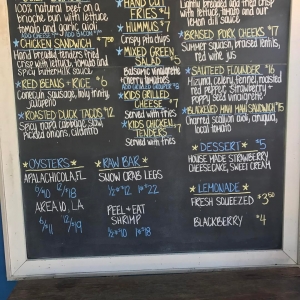 100% natural beef on a
brioche bun with lettuce
tomato and garlic aioli
CHICKEN SANDWICH $
Hand breaded tenders fried
crisp with lettuce, tomato and
spicy buttermilk sauce
RED BEANS & RICE $6
Conecuh sausage, holy trinity,
jalapeño
ROASTED DUCK TACOS $12
Spicy napa cabbage slaw,
pickled onions, cilantro
OYSTERS
APALACHICOLA, FL
6/$10 12/$18
AREA 10, LA
6/$11 12/$19
HAND CUT
FRIES $4
Crispy pita chips
HUMMUS $7
MIXED GREEN
SALAD $5
Balsamic vinaigrette
Cherry tomatoes
KIDS GRILLED
CHEESE $7
Served with fries
KIDS CHICKEN
TENDERS $7
Served with fries
RAW BAR
SNOW CRAB LEGS
1/2 $12 1# $22
PEEL + EAT
SHRIMP
1/2 $10 1# $18
Lightly breaded and then crisp
with lettuce, tomato and
dill sauce
BRAISED PORK CHEEKS $7
Summer squash, braised lentils,
red wine jus
SAUTEED FLOUNDER $16
red pepper, strawberry +
poppy seed vinaigrette
BLACKENED MAHI SANDWICH $15
Charred scallion aioli, arugula,
local tomato
DESSERT $5
HOUSE MADE STRAWBERRY
CHEESECAKE, SWEET CREAM
LEMONADE
FRESH SQUEEZED $3.50
BLACKBERRY $4